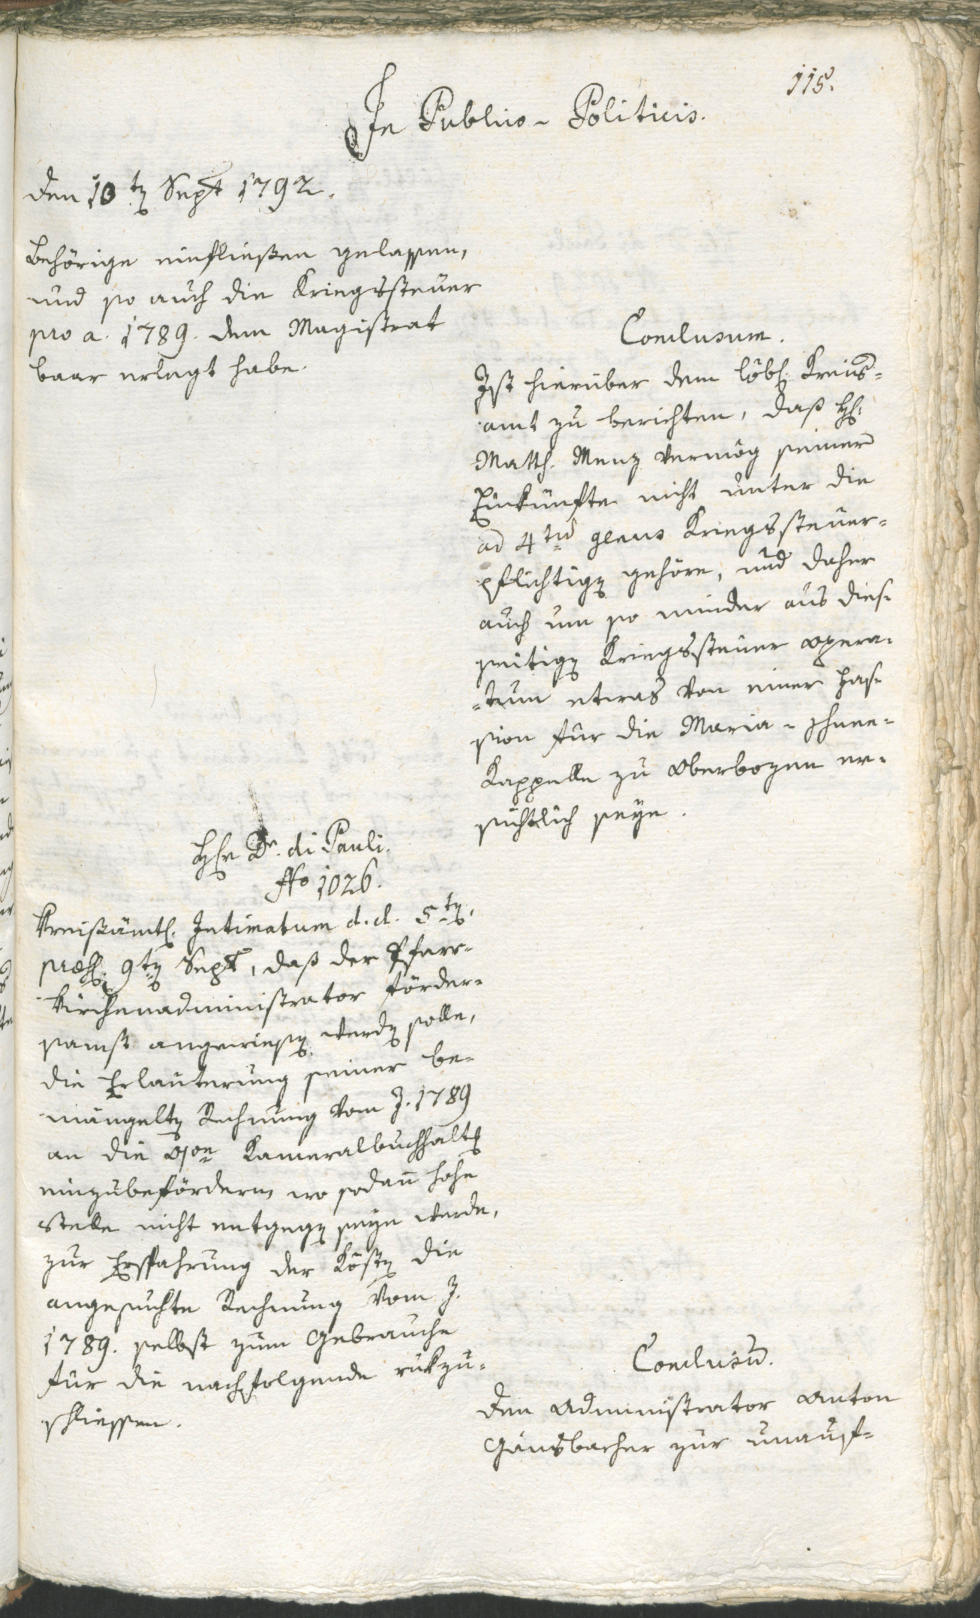 115.
In Publico-Politicis.
den 10tn Sept 1792.
behörige einfließen gelassen,
und so auch die Kriegssteuer
pro a. 1789. dem Magistrat
baar erlegt habe.
Conclusum.
Ist hierüber dem löbl. Kreis-
amt zu berichten, daß H.
Matth. Menz vermög seiner
Einkünfte nicht unter die
ad 4tue Kriegssteuer-
pflichtign gehöre, und daher
auch um so minder aus dies-
seitign Kriegssteuer opera-
-tum etwas von einer Fas-
sion für die Maria-Schnee-
Kappelle zu Oberbozen er-
sichtlich seye.
Hr Dr. di Pauli.
No 1026.
Kreisämtl. Intimatum d.d. 5tn,
præs. 9tn Sept, daß der Pfarr-
kirchenadministrator förder-
samst angewiesn werdn solle,
die Erläuterung seiner be-
mängeltn Rechnung vom J. 1789
an die Kameralbuchhaltg
einzubefördern, wo sodann hohe
Stelle nicht entgegn seyn werde,
zur Ersparung der Köstn die
angesuchte Rechnung vom J.
1789. selbst zum Gebrauche
für die nachfolgende rükzu-
schliessen.
Conclusum.
Dem Administrator Anton
Gänsbacher zur unauf-